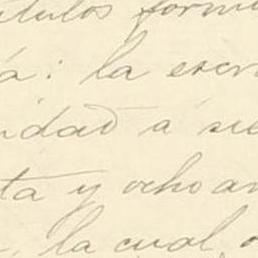 ítulos form
a: la escri
ndad á sie
ta y ocho añ
la cual